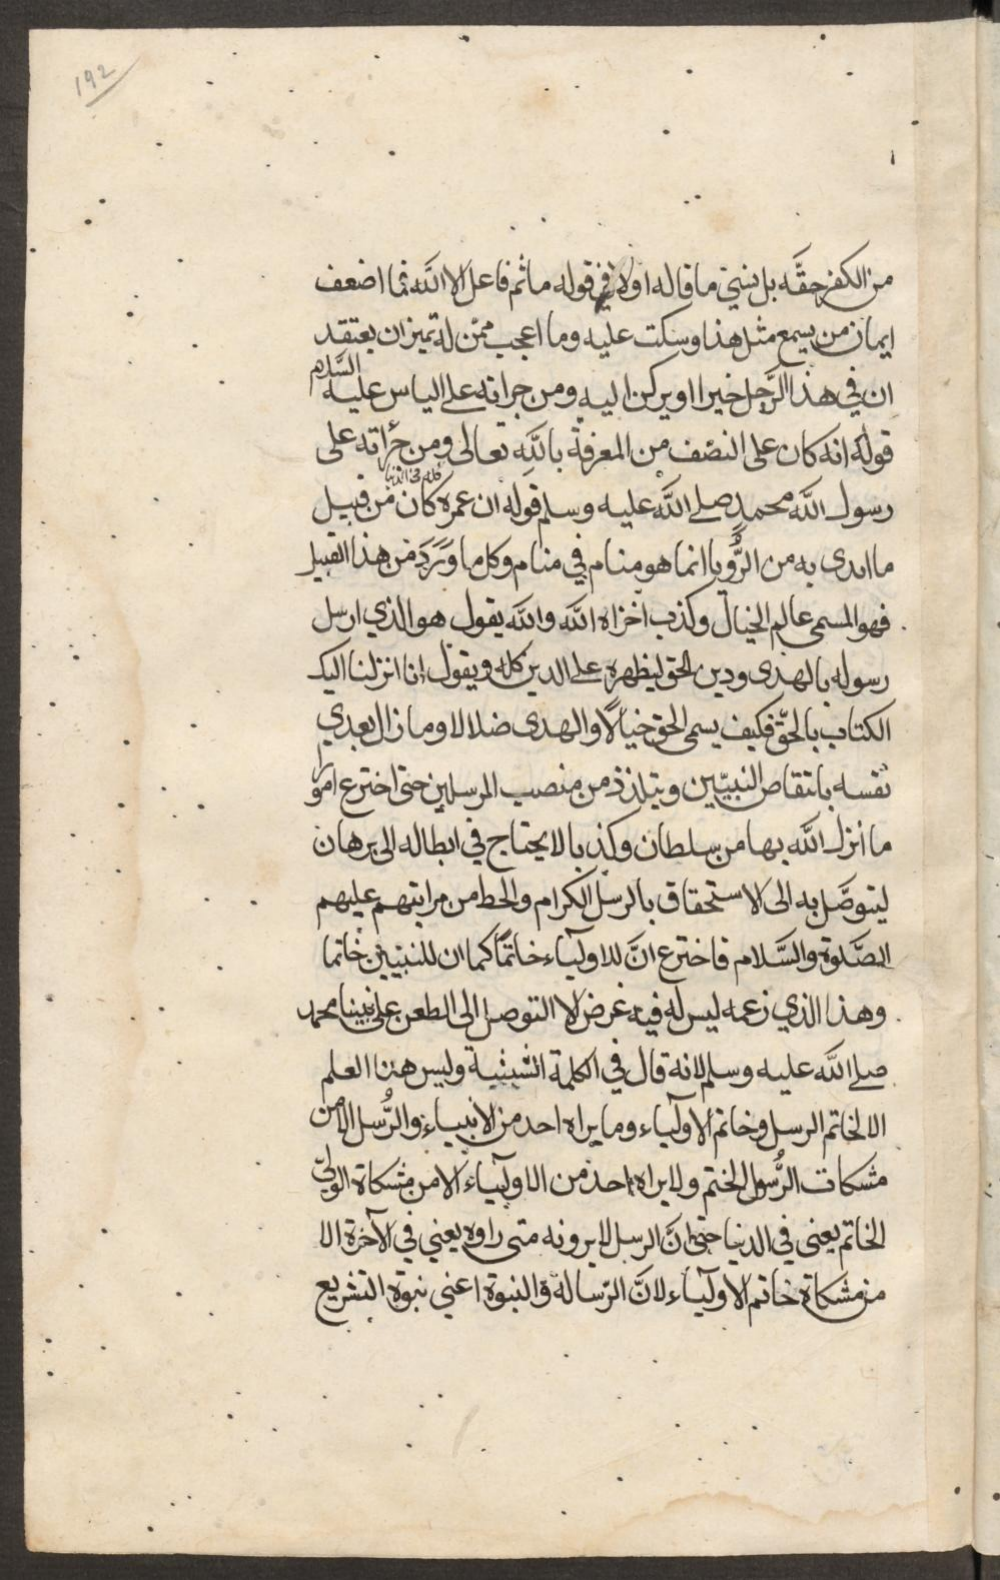 ١٩٢
من الكفر حقه بل نسي ما قاله اولا في قوله ما ثم فاعل الا الله فما اضعف
ايمان من يسمع مثل هذا وسكت عليه وما اعجب ممن له تميز ان يعتقد
ان في هذا الرَّجل خيرا او يركن اليه ومن جراته على الياس عليه السَّلام
قوله انه كان على النصف من المعرفة بالله تعالى ومن جرأته على
رسول الله محمدٍ صلى الله عليه وسلم قوله ان عمره كله في الدنيا كان من قبيل
ما ابدى به من الرُّويا انما هو منام في منام وكل ما وَرَدَ من هذا القبيل
فهو المسمى عالم الخيال وكذب اخزاه الله والله يقول هو الذي ارسل
رسوله بالهدى ودين الحق ليظهره على الدين كله ويقول انا انزلنا اليك
الكتاب بالحقّ فكيف يسمى الحق خيالًا والهدى ضلالا وما زال يعدي
نفسه بانتقاص النبيّين ويتلذذ من منصب المرسلين حتى اخترع امورا
ما انزل الله بها من سلطان وكذبا لا يحتاج في ابطاله الى برهان
ليتوصَّل به الى الاستحقاق بالرسل الكرام والحط من مراتبهم عليهم
الصَّلوة والسَّلام فاخترع انَّ للاوليآء خاتمًا كما ان للنبيّين خاتما
وهذا الذي زعمه ليس له فيه غرض الا التوصل الى الطعن على نبينا محمد
صلى الله عليه وسلم لانه قال في الكلمة الشيثية وليس هذا العلم
الا لخاتم الرسل وخاتم الاوليآء وما يراه احد من الانبياء والرُّسل الا من
مشكات الرُّسول الختم ولا يراه احد من الاوليآء الا من مشكاة الوليّ
الخاتم يعني في الدنيا حتى انَّ الرسل لا يرونه متى راوه يعني في الآخرة الا
من مشكاة خاتم الاوليآء لانَّ الرّسالة والنبوة اعني نبوة التشريع